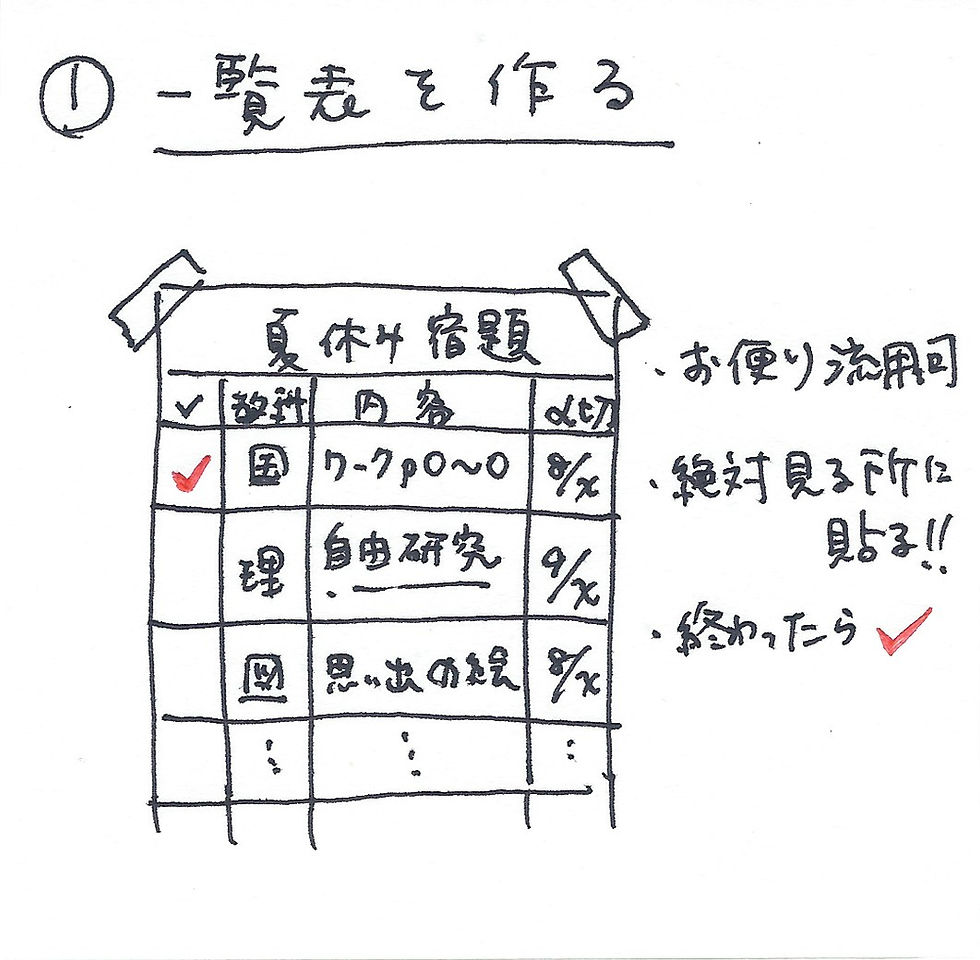 ① 一覧表を作る
夏休み宿題
✓ 教科 内容 〆切
✓ 国 ワークp○〜○ 8/x
理 自由研究 9/x
図 思い出の絵 8/x
⋮ ⋮ ⋮
・お便り流用可
・絶対見る所に
貼る!!
・終わったら ✓